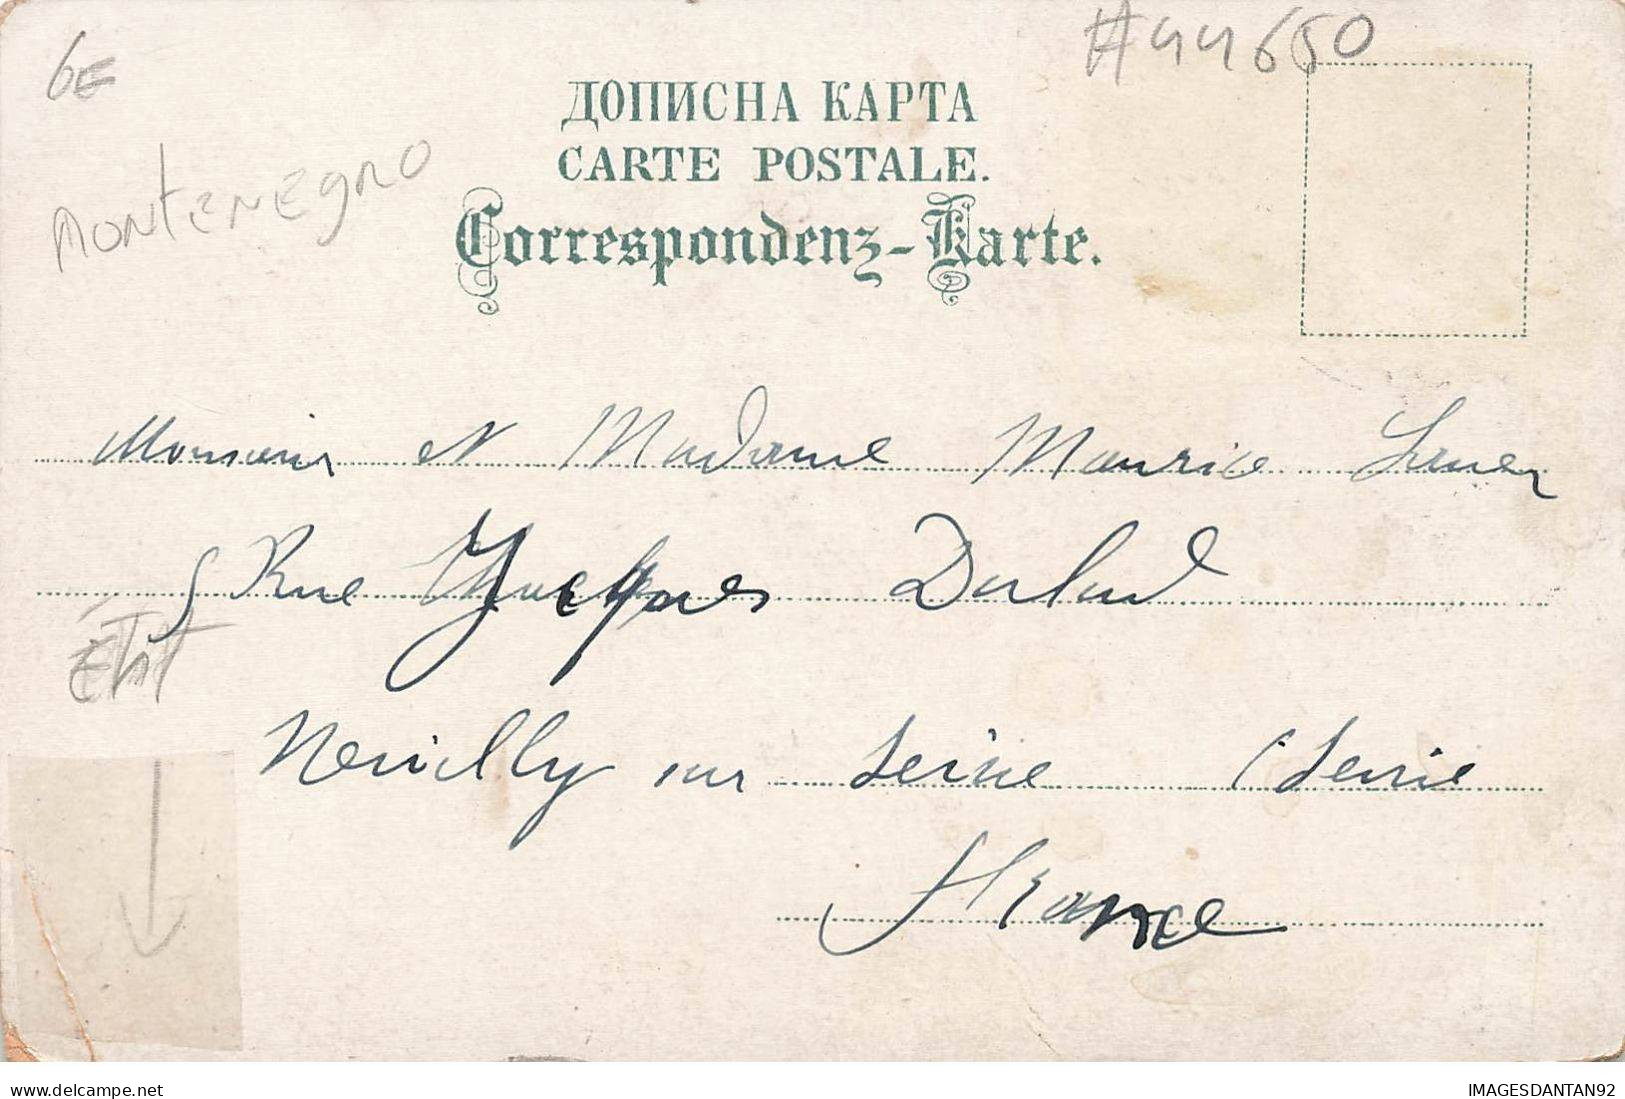 6E
#44650
ДОПИСНА КАРТА
CARTE POSTALE.
Correspondenz-Karte.
MONTENEGRO
Monsieur et Madame Maurice
5 Rue Jacques Dulud
ETAT
Neuilly sur Seine (Seine
France
www.delcampe.net
IMAGESDANTAN92